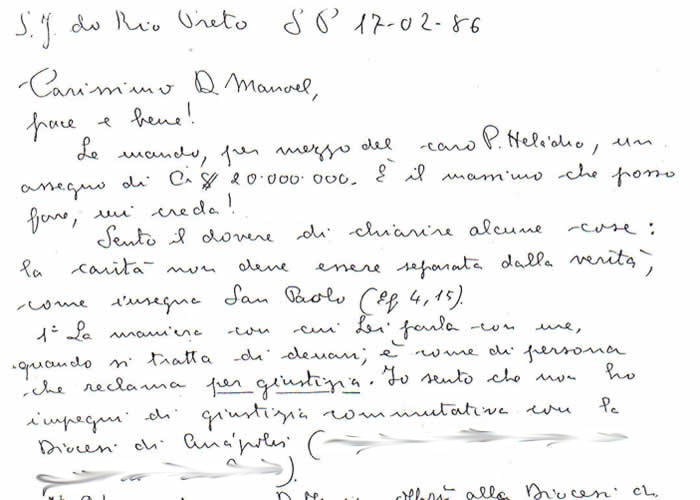 S. J. do Rio Preto SP 17-02-86
Carissimo D. Manoel,
pace e bene!
Le mando, per mezzo del caro P. Helidho, un
assegno di Cr $ 20.000.000. È il massimo che posso
fare, mi creda!
Sento il dovere di chiarire alcune cose:
la carità non deve essere separata dalla verità,
come insegna San Paolo (Ef 4,15).
1º La maniera con cui Lei parla con me,
quando si tratta di denari, è come di persona
che reclama per giustizia. Io sento che non ho
impegni di giustizia commutativa con la
Diocesi di Anápolis (
).
alla Diocesi di